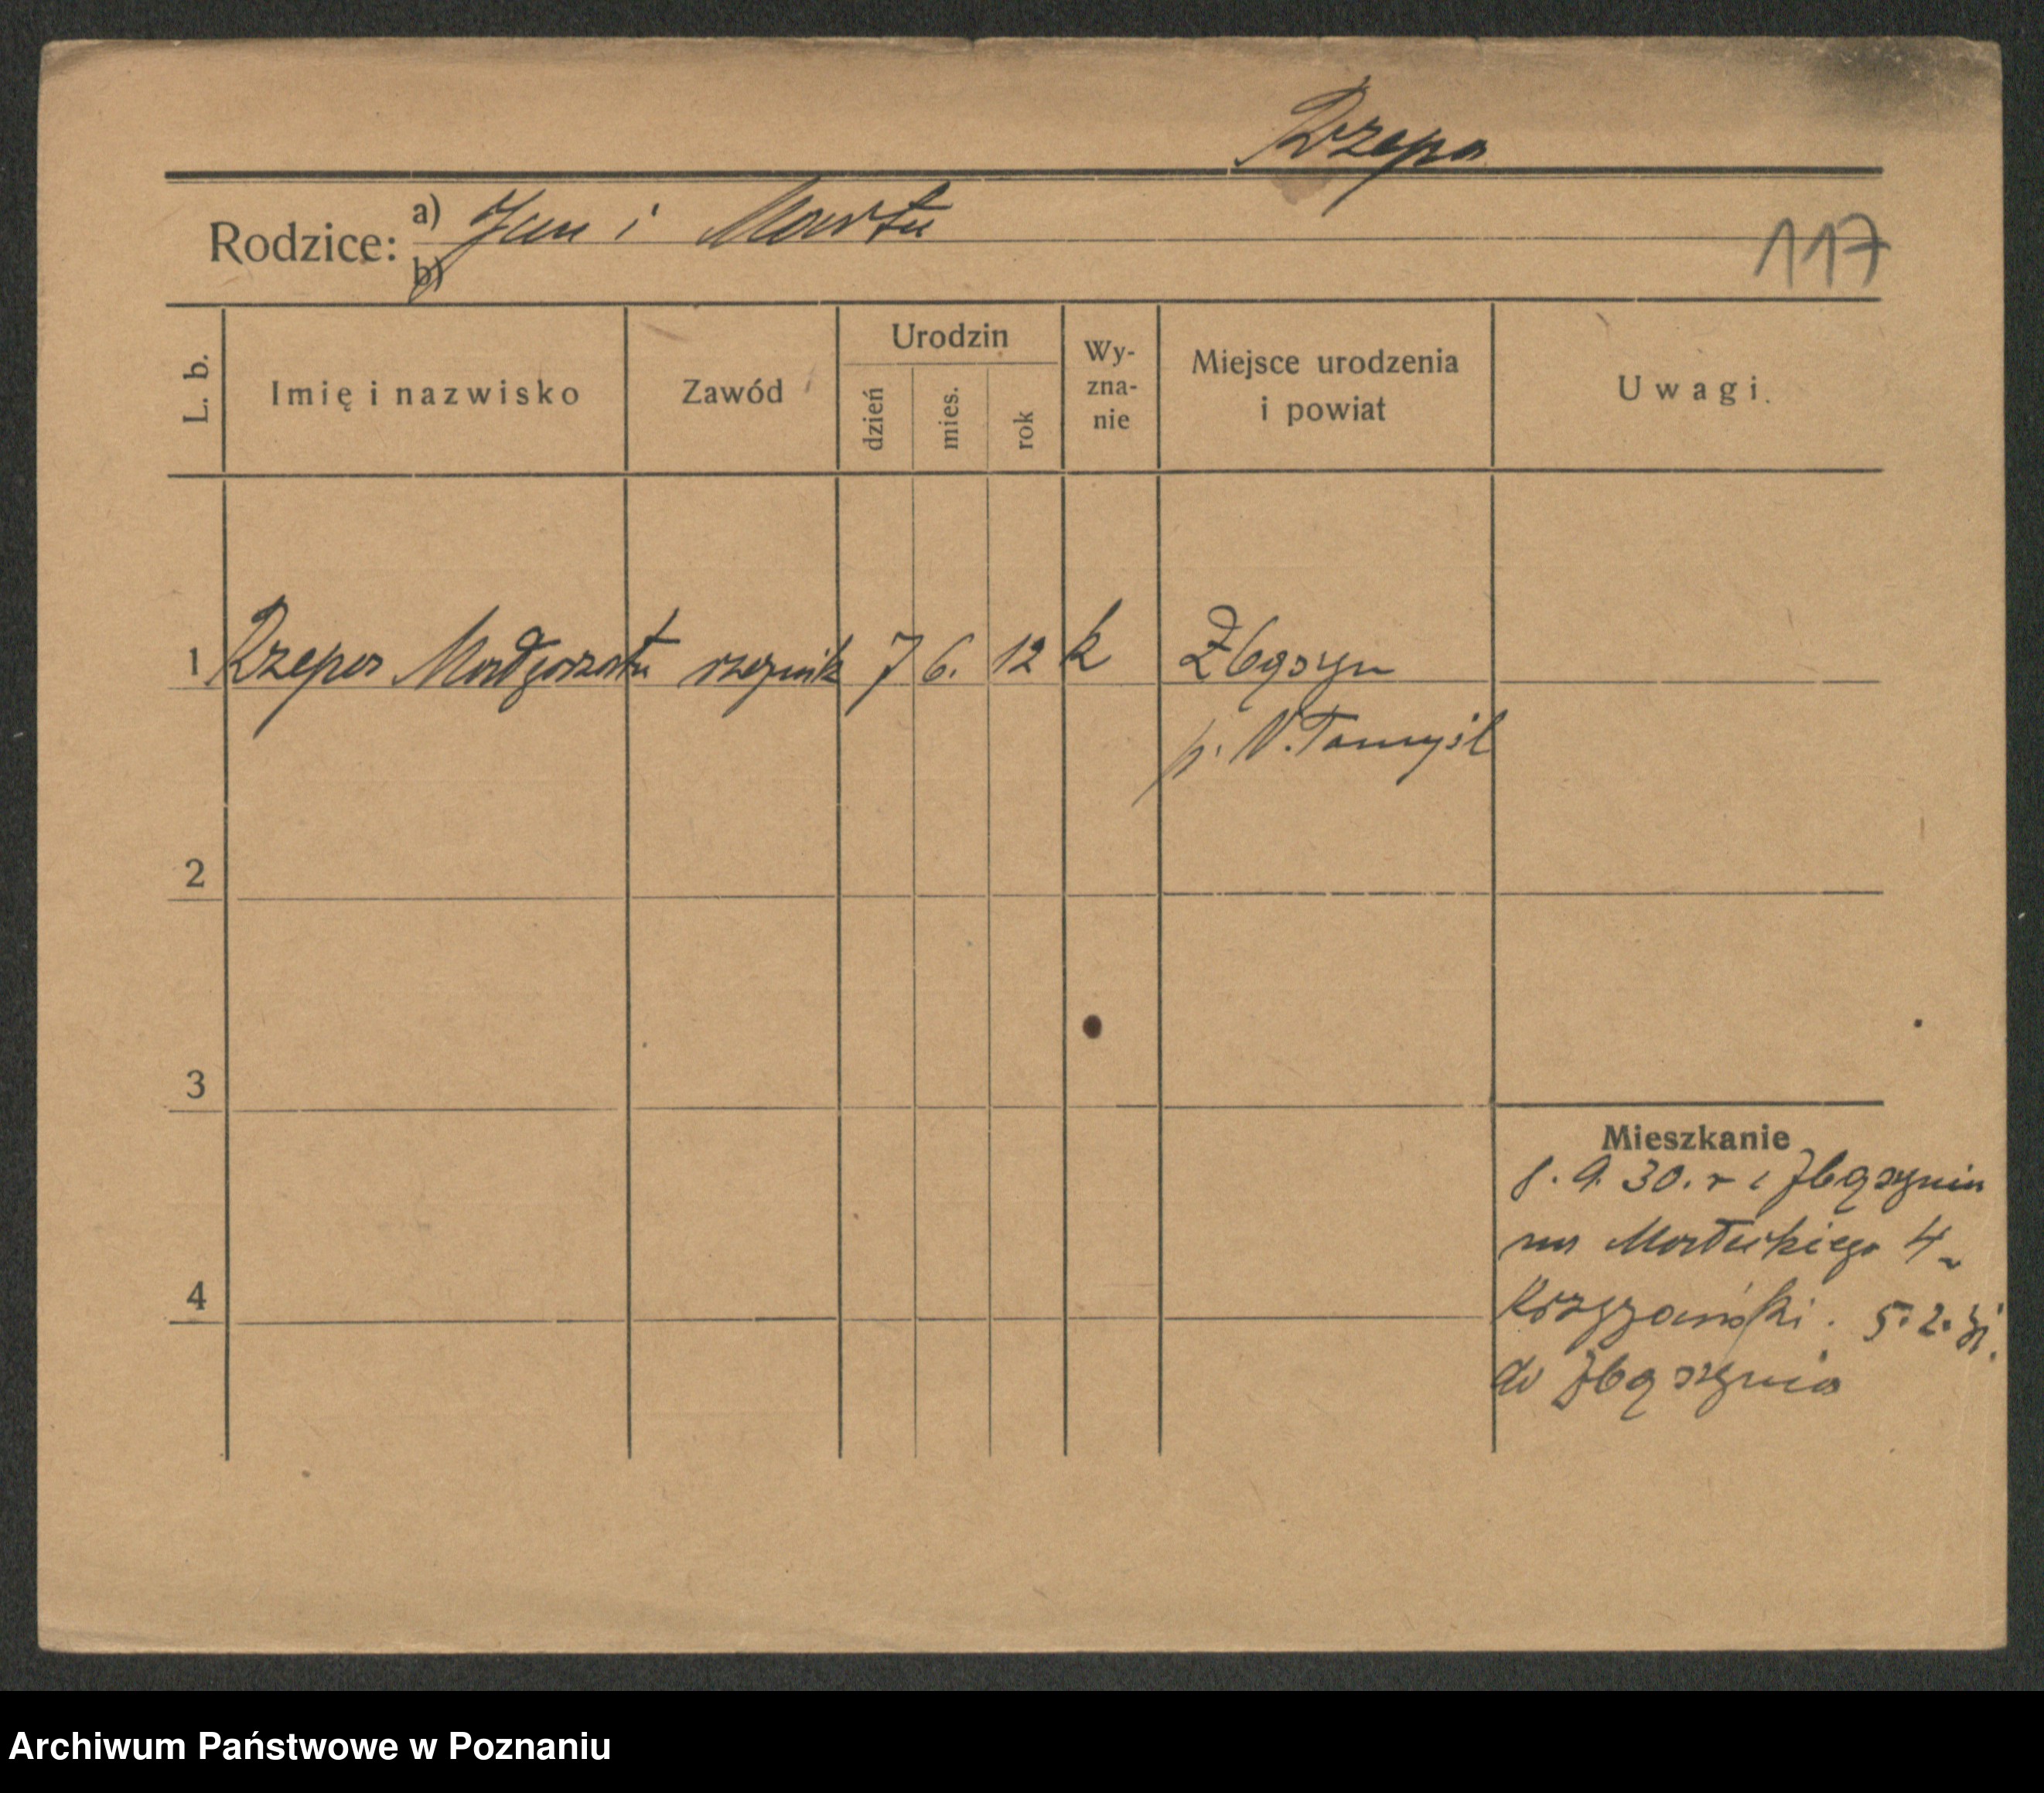 Rzepa
Rodzice: a) Jan i Marta
b)
117
L. b.
Imię i nazwisko
Zawód
Urodzin
dzień
mies.
rok
Wy-
zna-
nie
Miejsce urodzenia
i powiat
Uwagi.
1 Rzepa Małgorzata rzeźnik 7 6. 12 k Zbąszyn
p. N. Tomyśl
2
3
4
Mieszkanie
9. 30. r Zbąszynia
na Małeckiego 4
Krzyżański. 5. 2. 31.
do Zbąszynia
Archiwum Państwowe w Poznaniu